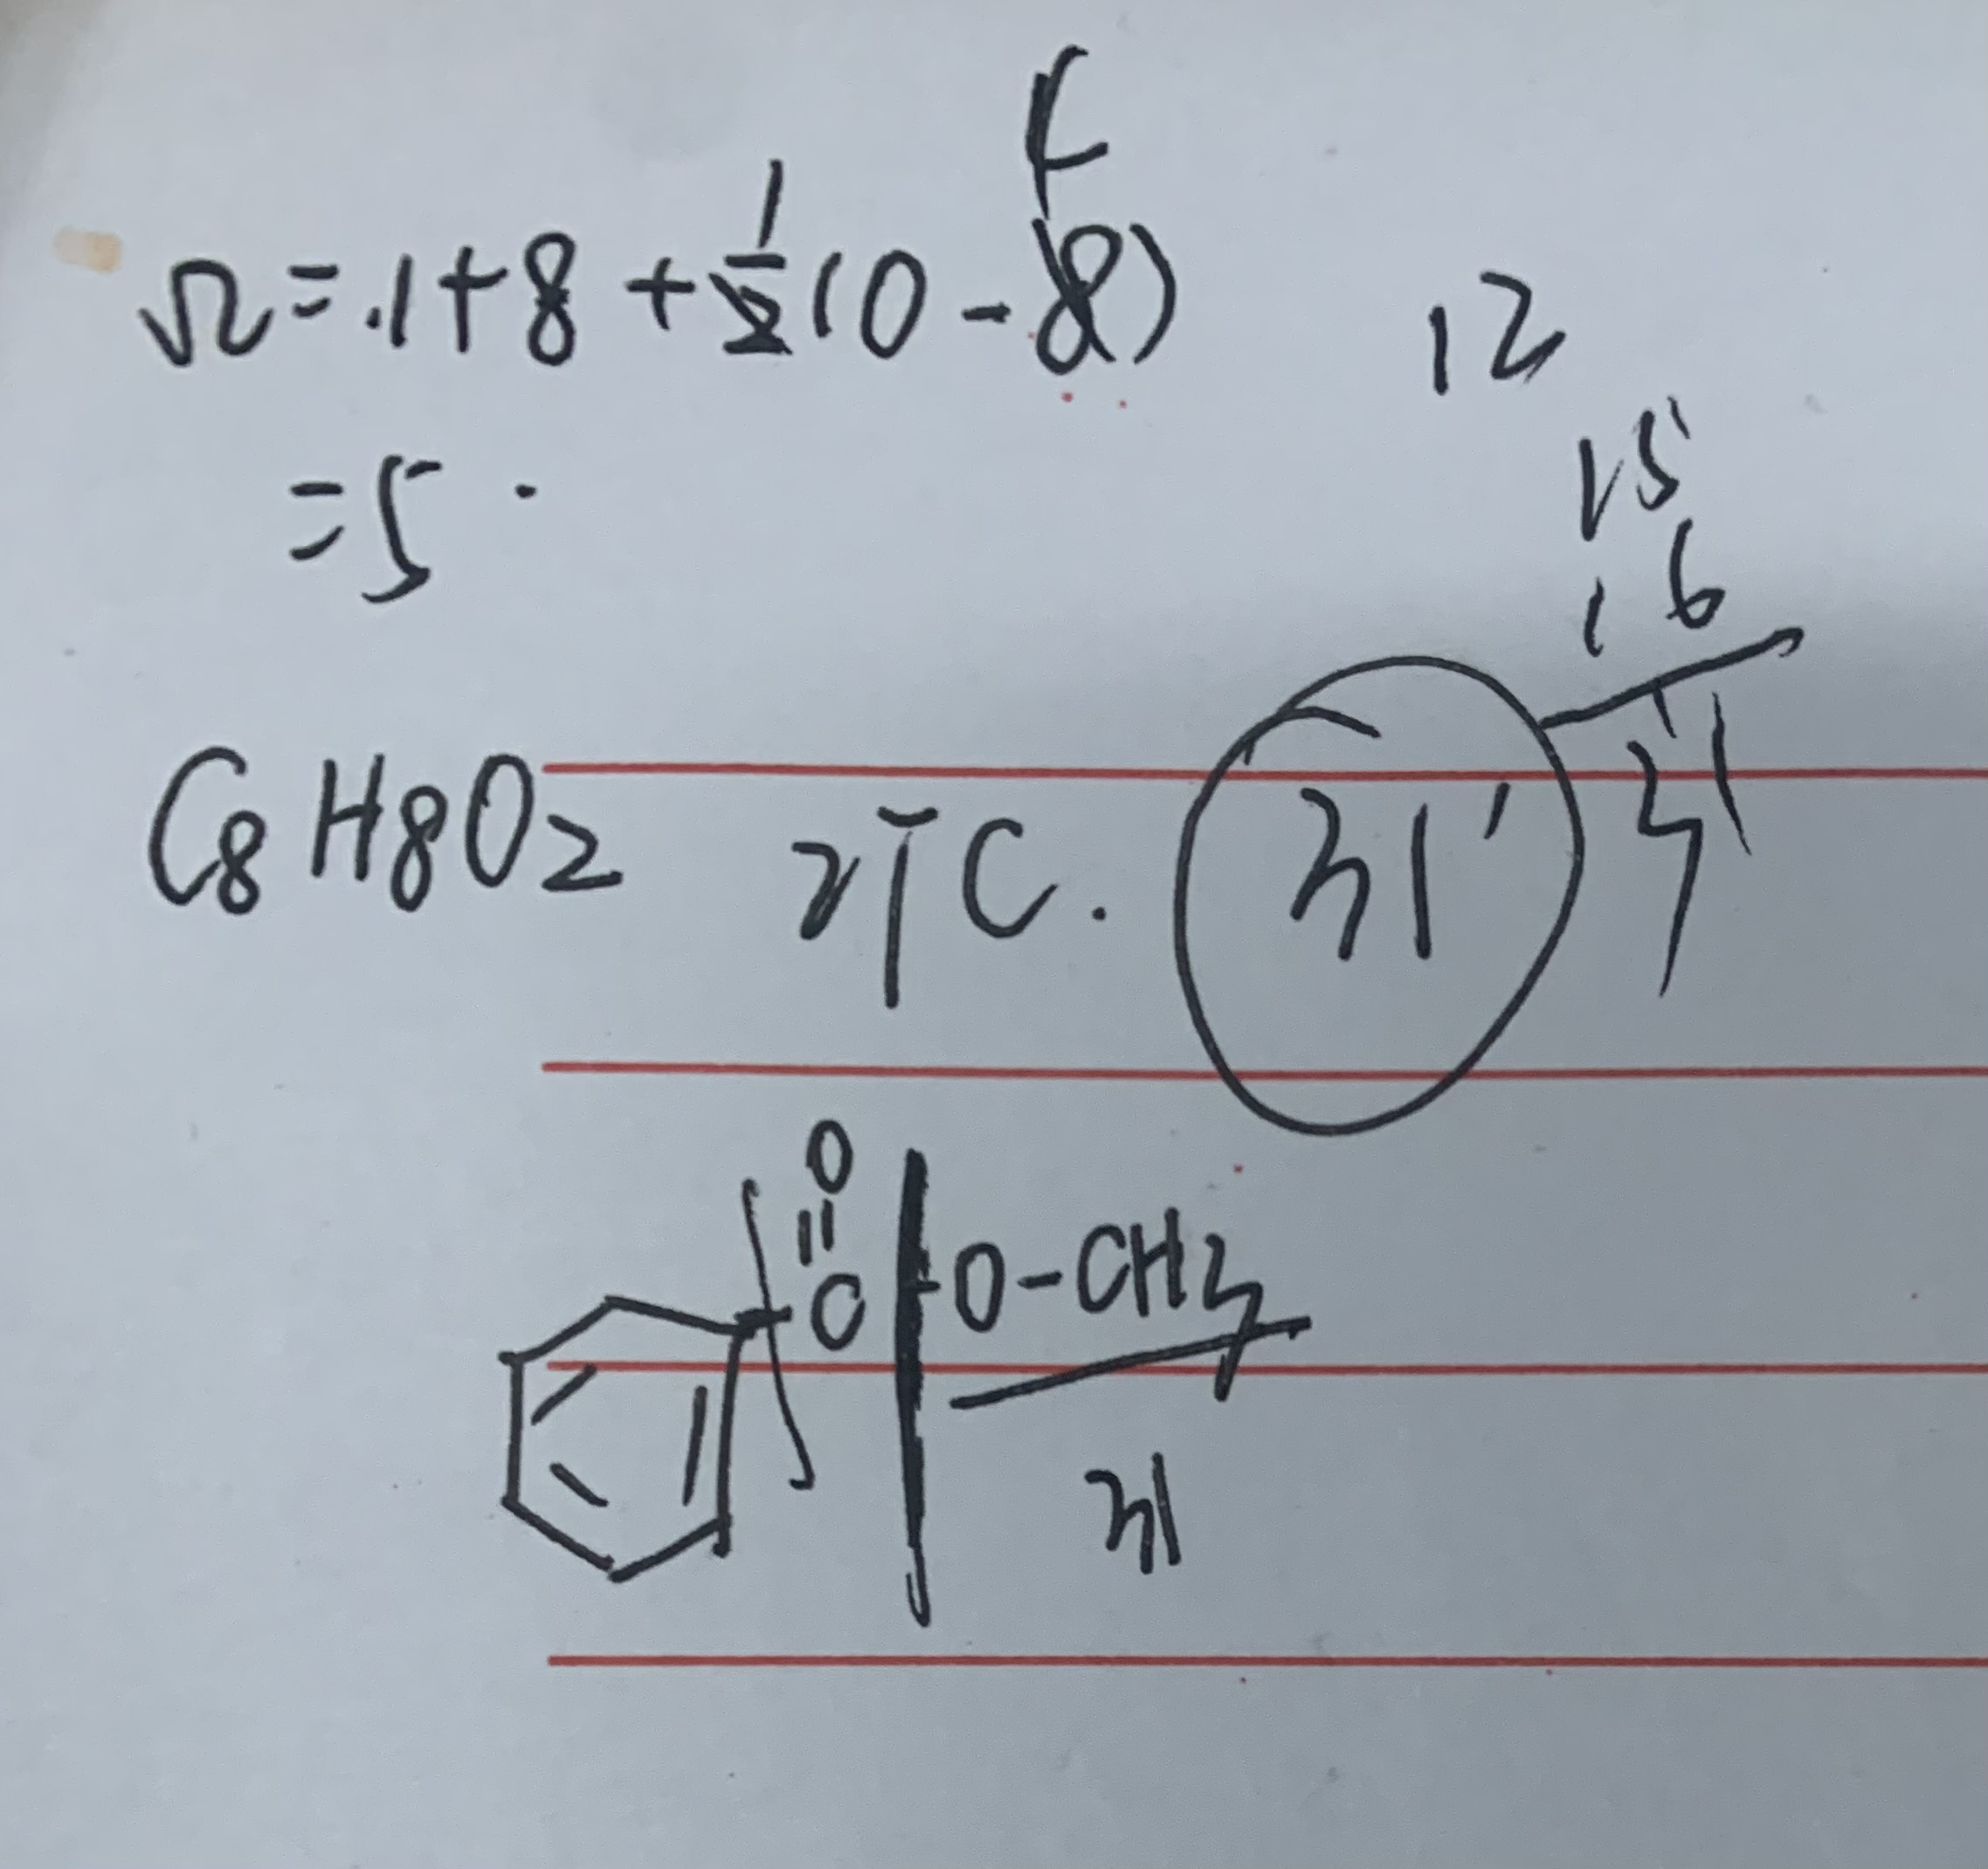 Ω=.1+8+½(0-8)
=5
12
15
16
31
C8H8O2
31
O
C O-CH3
31